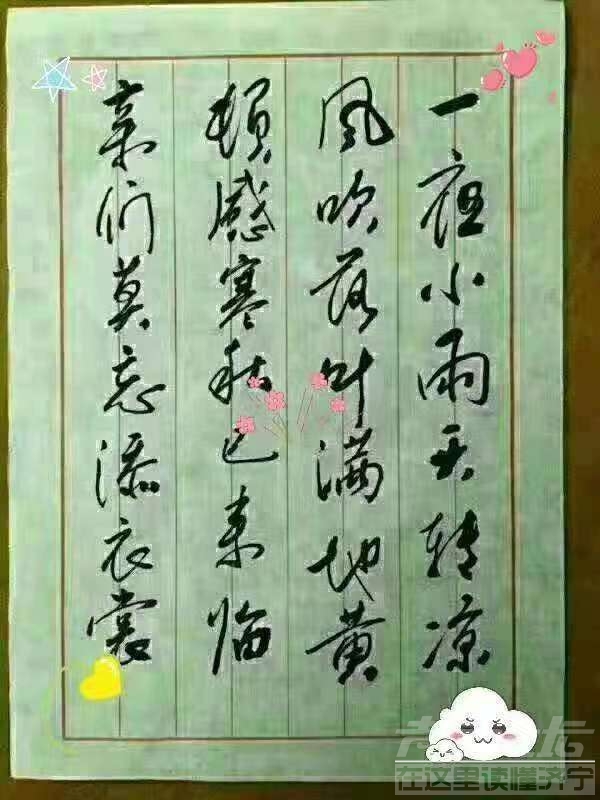 一夜小雨天转凉
风吹落叶满地黄
顿感寒秋已来临
亲们莫忘添衣裳
在这里读懂济宁